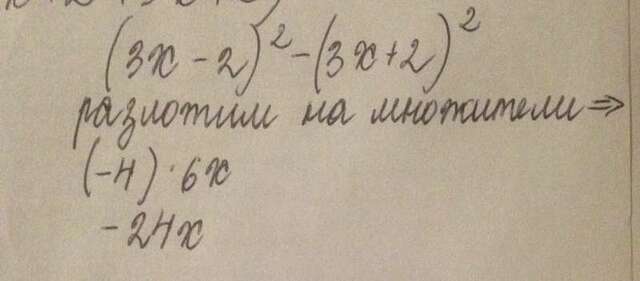 (3x - 2)² - (3x + 2)²
разложим на множители ⇒
(-4) · 6x
-24x